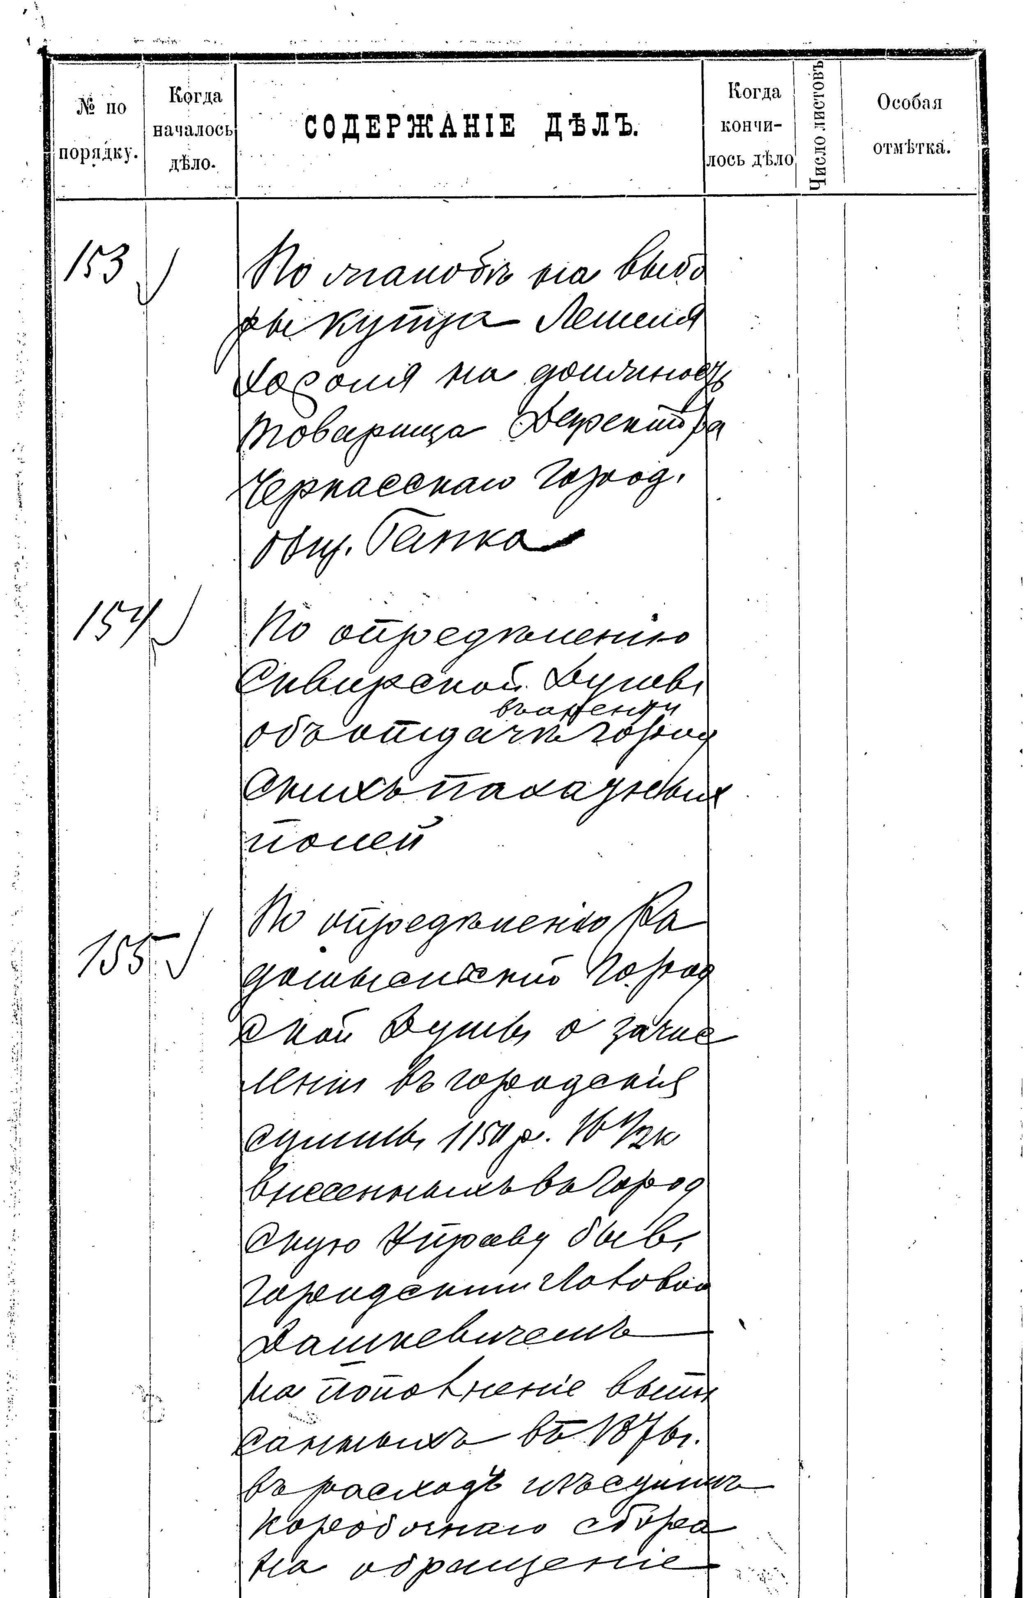 № по порядку.
Когда началось дѣло.
СОДЕРЖАНІЕ ДѢЛЪ.
Когда кончи-лось дѣло
Число листовъ
Особая отмѣтка.
153
По жалобѣ на выбо
ры купца
на должность
товарища Директора
Черкасскаго город.
общ. Банка
154
По опредѣленію
Сквирской Думы
въ аренду
объ отдачѣ город
скихъ пахатныхъ
полей
155
По опредѣленію Ра
домысльской Город
ской Думы о зачис
леніи въ городскія
суммы 1150 р. 16 1/2 к
внесенныхъ въ Город
скую Управу бывш
городскимъ Головою
Дашкевичемъ
на пополненіе выпи
санныхъ въ 1876 г.
въ расходъ изъ суммъ
коробочнаго сбора
на обращеніе